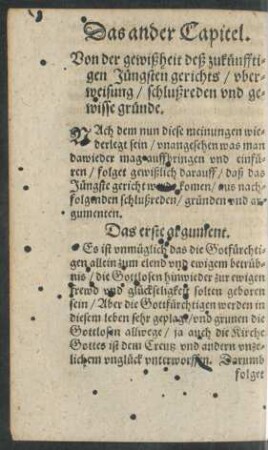 Das ander Capitel.
Von der gewißheit deß zukünfftigen
Jüngsten gerichts / vberweisung
/ schlußreden vnd gewisse
gründe.
NAch dem nun diese meinungen wiederlegt
sein / vnangesehen was man
dawieder mag auffbringen vnd einfüren
/ folget gewißlich darauff / daß das
Jüngste gericht komen / aus nachfolgenden
schlußreden / gründen vnd argumenten.
Das erste argument.
Es ist vnmüglich das die Gotfürchtigen
allein zum elend vnd ewigem betrübnis
/ die Gottlosen hinwieder zur ewigen
frewd vnd glückseligkeit solten geboren
sein / Aber die Gottfürchtigen werden in
diesem leben sehr geplagt / vnd grunen die
Gottlosen allwege / ja auch die Kirche
Gottes ist dem Creutz vnd andern vnzelichem
vnglück vnterworffen. Darumb
folget